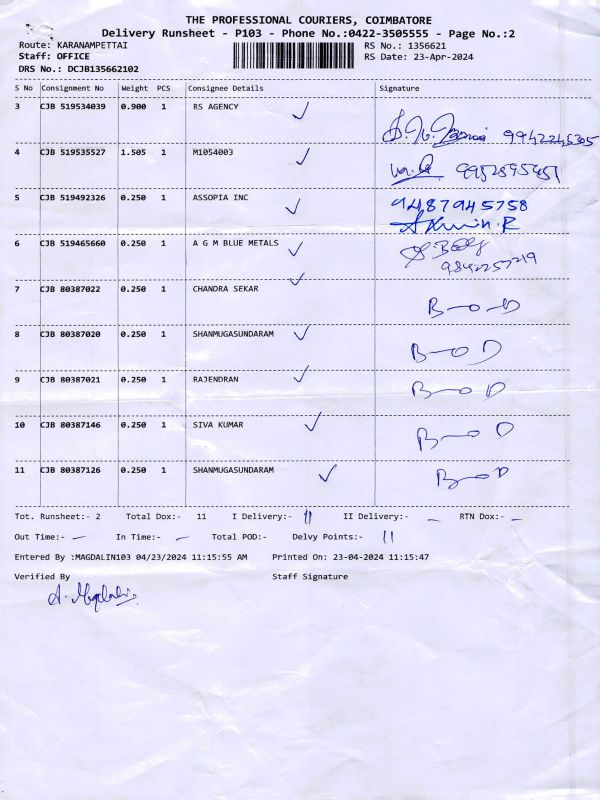 THE PROFESSIONAL COURIERS, COIMBATORE
Delivery Runsheet - P103 - Phone No.:0422-3505555 - Page No.:2
Route: KARANAMPETTAI RS No.: 1356621
Staff: OFFICE RS Date: 23-Apr-2024
DRS No.: DCJB135662102
S No Consignment No Weight PCS Consignee Details Signature
3 CJB 519534039 0.900 1 RS AGENCY ✓
9942245305
4 CJB 519535527 1.505 1 M1054003 ✓
9952595451
5 CJB 519492326 0.250 1 ASSOPIA INC ✓ 9487945758
6 CJB 519465660 0.250 1 A G M BLUE METALS ✓
9842257219
7 CJB 80387022 0.250 1 CHANDRA SEKAR ✓ B-O-D
8 CJB 80387020 0.250 1 SHANMUGASUNDARAM ✓ B-O D
9 CJB 80387021 0.250 1 RAJENDRAN ✓ B-O D
10 CJB 80387146 0.250 1 SIVA KUMAR ✓ B-O D
11 CJB 80387126 0.250 1 SHANMUGASUNDARAM ✓ B-O D
Tot. Runsheet:- 2 Total Dox:- 11 I Delivery:- 11 II Delivery:- - RTN Dox:- -
Out Time:- - In Time:- - Total POD:- Delvy Points:- 11
Entered By :MAGDALIN103 04/23/2024 11:15:55 AM Printed On: 23-04-2024 11:15:47
Verified By Staff Signature